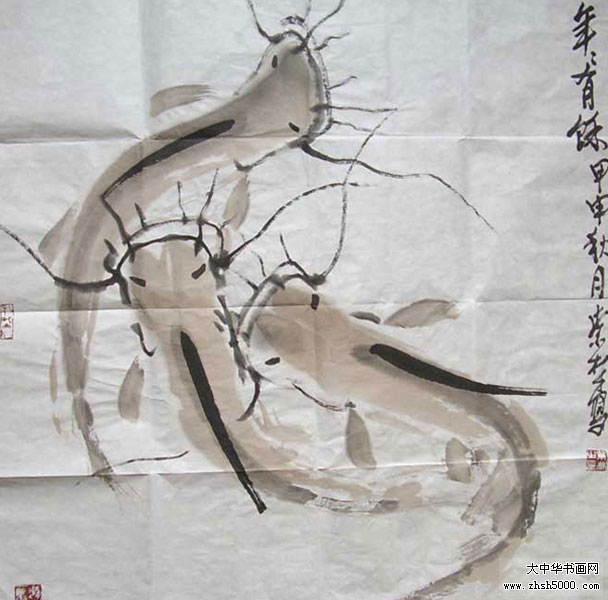 年〻有馀甲申秋月崇
大中华书画网
www.zhsh5000.com